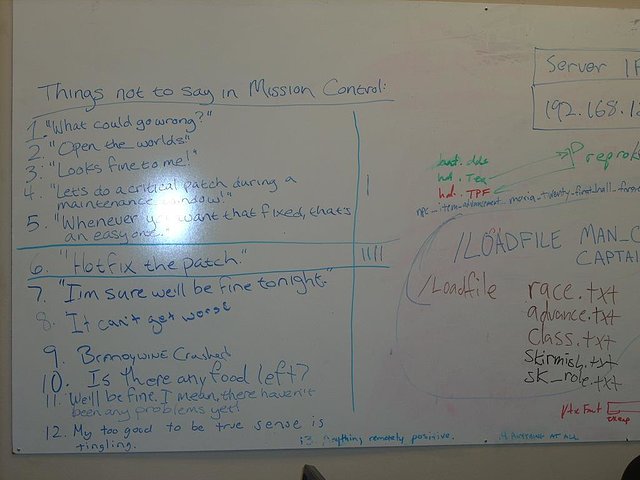 Things not to say in Mission Control:
1. "What could go wrong?"
2. "Open the worlds"
3. "Looks fine to me!"
4. "Let's do a critical patch during a
maintenance window!"
5. "Whenever you want that fixed, that's
an easy one."
6. "Hotfix the patch."
7. "I'm sure we'll be fine tonight."
8. It can't get worse
9. Brandywine Crashed
10. Is there any food left?
11. We'll be fine. I mean, there haven't
been any problems yet!
12. My too good to be true sense is
tingling.
13. Anything remotely positive.
14. ANYTHING AT ALL
Server
192.168.
hd. TPF
/LOADFILE MAN_C
CAPTAI
/Loadfile race.txt
advance.txt
class.txt
skirmish.txt
sk_role.txt